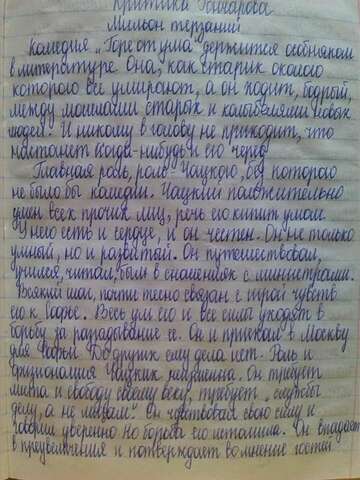 Критика Гончарова
Мильон терзаний
Комедия „Горе от ума" держится особняком
в литературе. Она, как старик около
которого все умирают, а он ходит, бодрый,
между могилами старых и колыбелями новых
людей. И никому в голову не приходит, что
настанет когда-нибудь и его черед.
Главная роль, роль - Чацкого, без которого
не было бы комедии. Чацкий положительно
умен всех прочих лиц, речь его кипит умом.
У него есть и сердце, и он честен. Он не только
умный, но и развитой. Он путешествовал,
учился, читал, был в сношениях с министрами.
Всякий шаг, почти тесно связан с игрой чувств
его к Софье. Весь ум его и все силы уходят в
борьбу за разгадывание ее. Он и приехал в Москву
для Софьи. До других ему дела нет. Роль и
физиономия Чацких неизменна. Он требует
места и свободу своему веку, требует „службы
делу, а не лицам". Он чувствовал свою силу и
говорил уверенно но борьба его истомила. Он впадает
в преувеличения и потверждает во мнение гостей